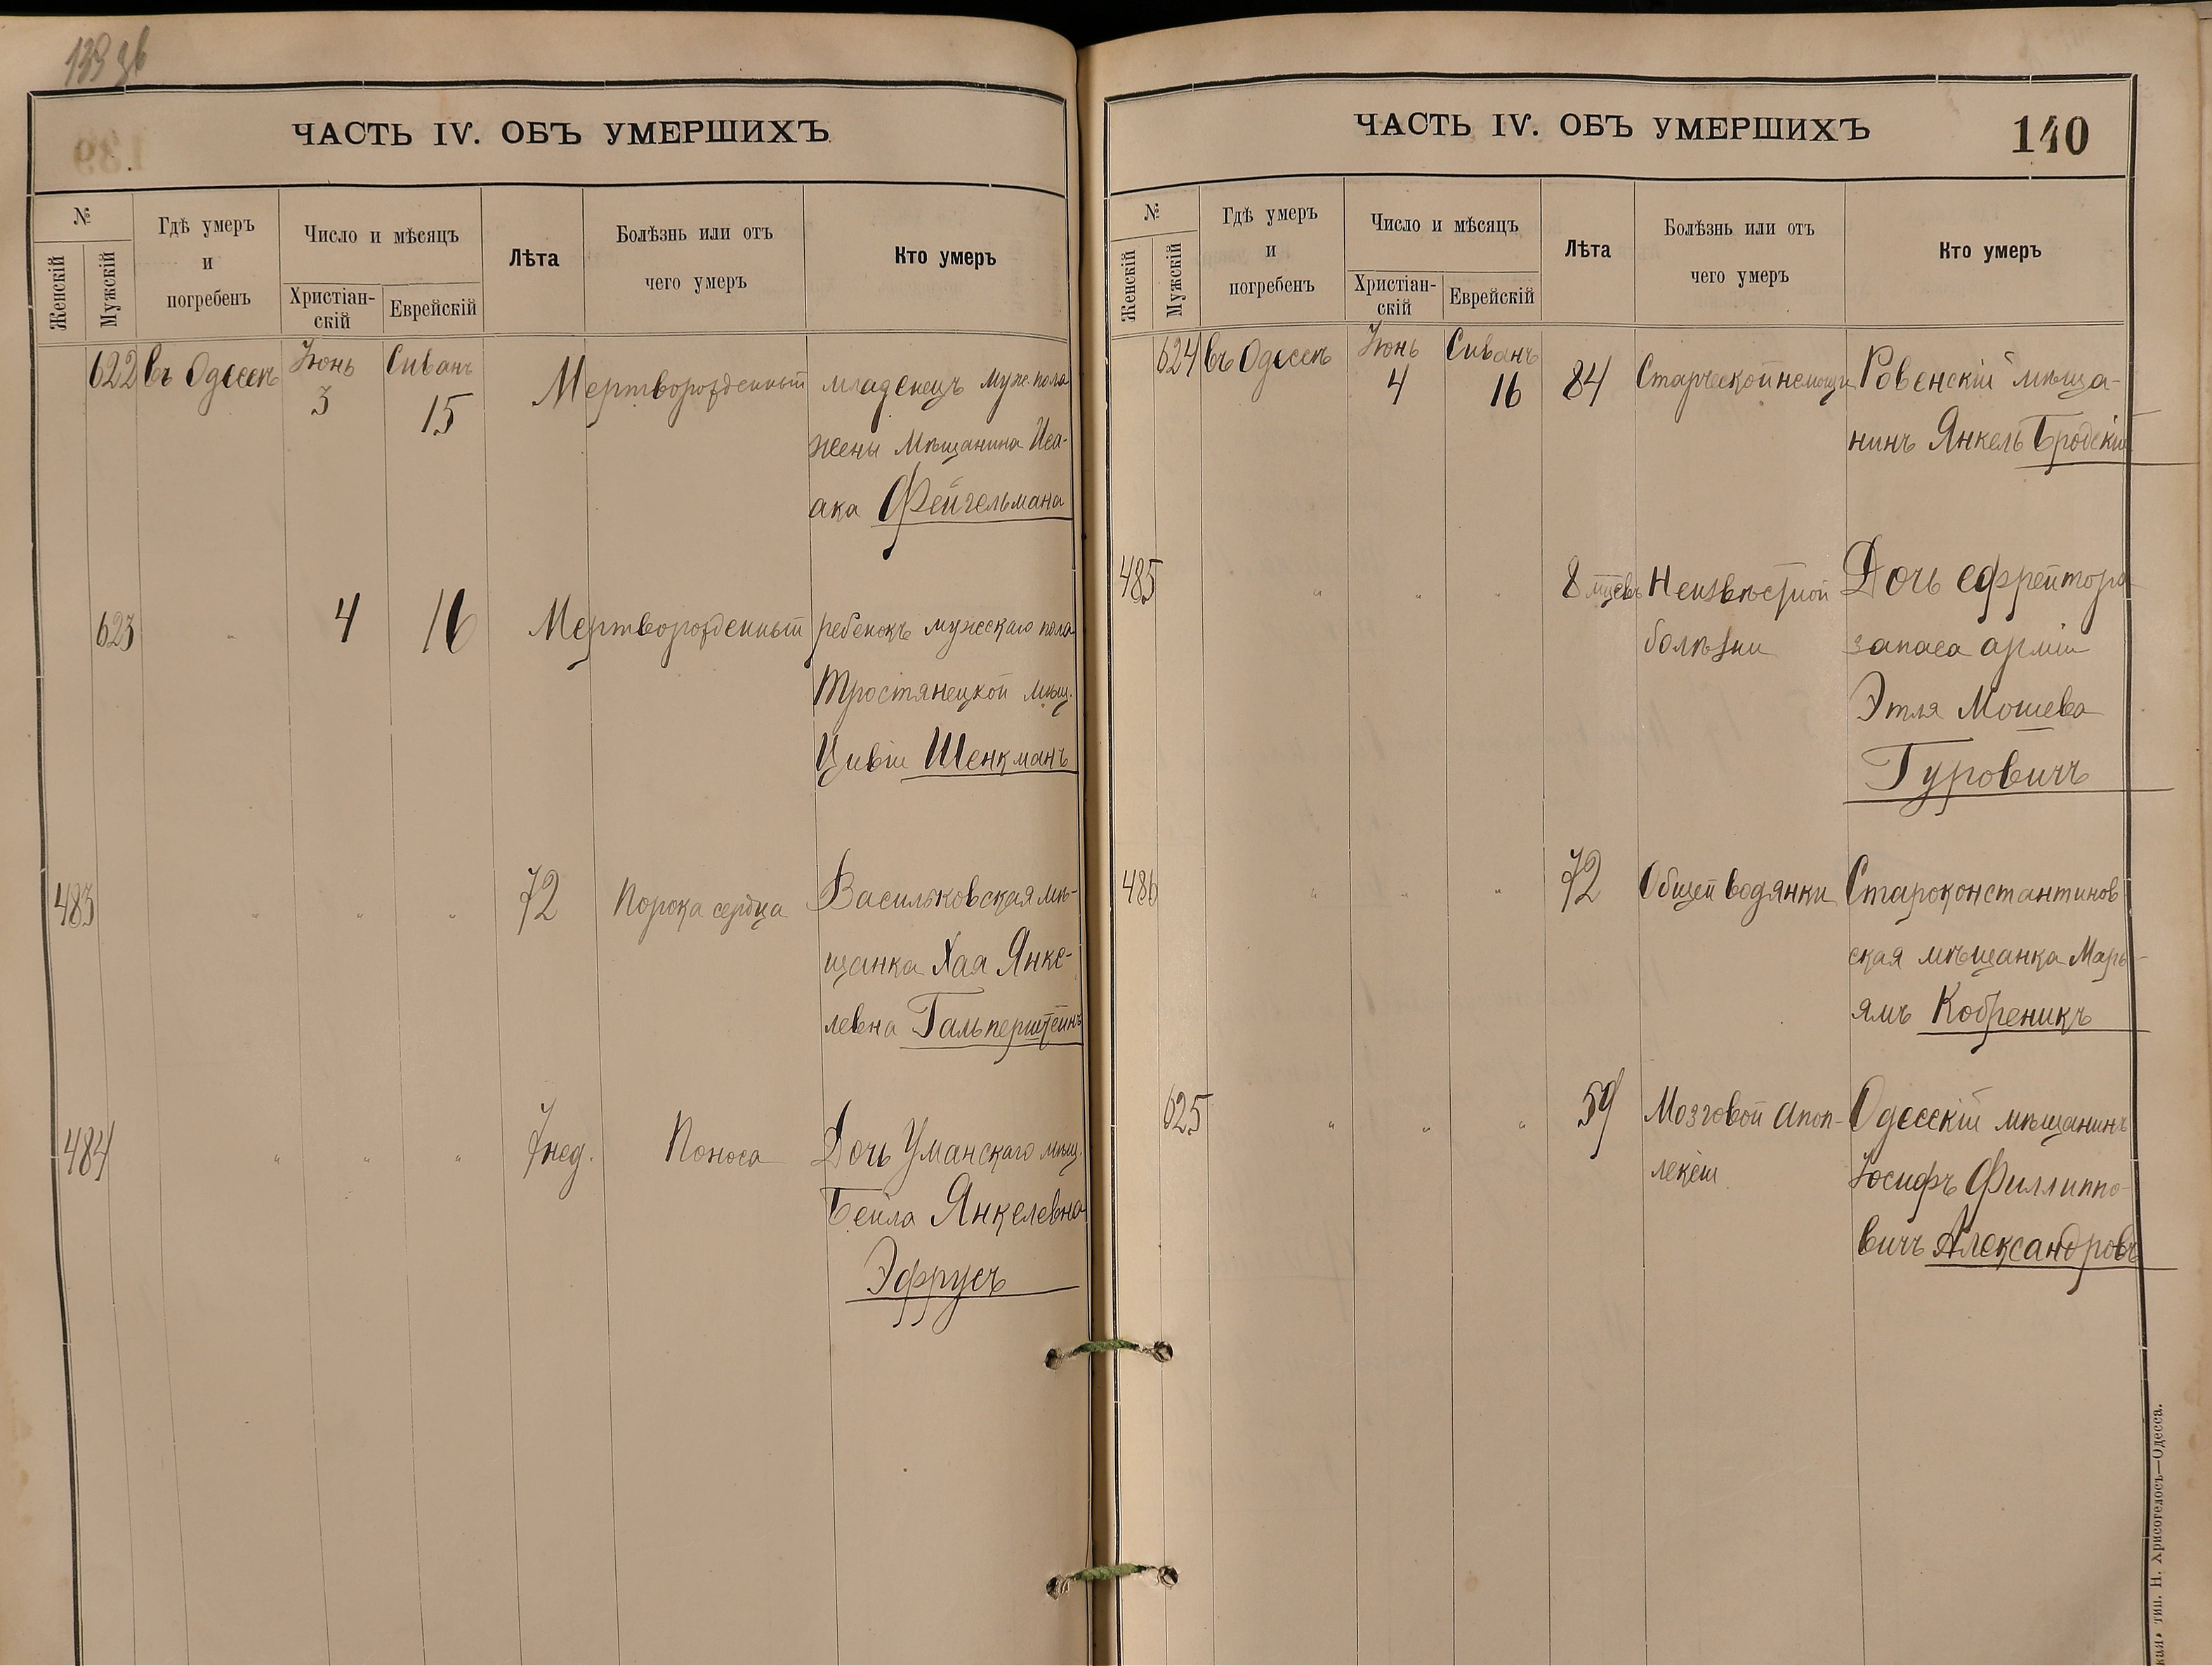 139 зв
ЧАСТЬ IV. ОБЪ УМЕРШИХЪ
№
Женскій
Мужскій
Гдѣ умеръ
и
погребенъ
Число и мѣсяцъ
Христіан-
скій
Еврейскій
Лѣта
Болѣзнь или отъ
чего умеръ
Кто умеръ
622 въ Одессѣ Іюнь 3 Сиванъ 15 Мертворожденный младенецъ муж. пола
жены мѣщанина Иса-
ака Фейгельмана
623 " 4 16 Мертворожденный ребенокъ мужескаго пола
Тростянецкой мѣщ.
Цивіи Шенкманъ
483 " " " 72 Порока сердца Васильковская мѣ-
щанка Хая Янке-
левна Гальперштейнъ
484 " " " 7 нед. Поноса Дочь Уманскаго мѣщ.
Бейла Янкелевна
Эфрусъ
ЧАСТЬ IV. ОБЪ УМЕРШИХЪ
140
№
Женскій
Мужскій
Гдѣ умеръ
и
погребенъ
Число и мѣсяцъ
Христіан-
скій
Еврейскій
Лѣта
Болѣзнь или отъ
чего умеръ
Кто умеръ
624 въ Одессѣ Іюнь 4 Сиванъ 16 84 Старческой немощи Ровенскій мѣща-
нинъ Янкель Бродскій
485 " " " 8 мцевъ Неизвѣстной Дочь ефрейтора
болѣзни запаса арміи
Этля Мошева
Гуровичъ
486 " " " 72 Общей водянки Староконстантинов
ская мѣщанка Марь-
ямъ Кобреникъ
625 " " " 59 Мозговой апоп- Одесскій мѣщанинъ
лексіи Іосифъ Филлиппо-
вичъ Александровъ
тип. Н. Хрисогелосъ—Одесса.